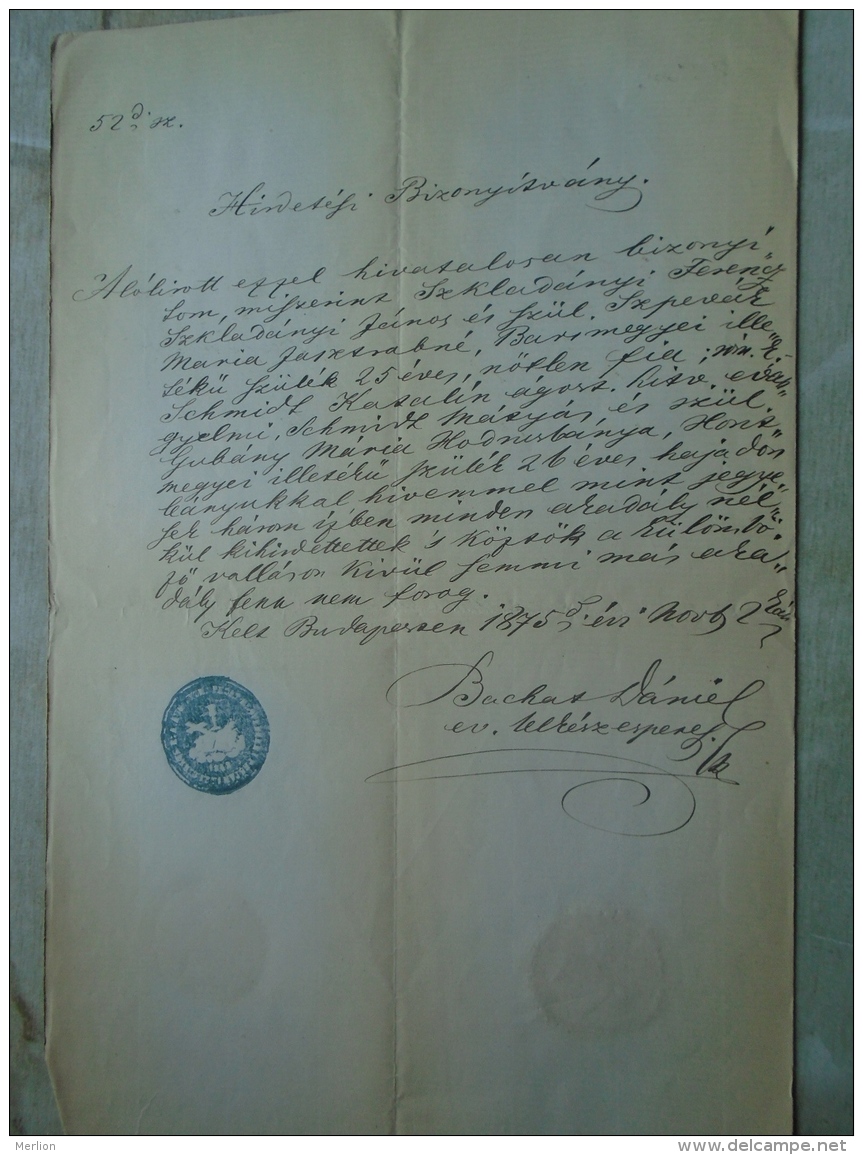 52 d. sz.
Hirdetési Bizonyítvány.
Alólirott ezzel hivatalosan bizonyí„
tom, miszerint Szkladányi Ferencz
Szkladányi János és szül.
Maria Jasztrabné, Barsmegyei ille„
tékű szülék 25 éves, nőtlen fia róm. k.
Schmidt Katalin ágost. hitv. evan„
gyelmi, Schmidt Mátyás és szül.
Gubány Mária Hodrusbánya, Hont„
megyei illetékű szülék 26 éves hajadon
leányukkal hivemmel mint jegye„
sek három izben minden akadály nél„
kül kihirdettettek 's köztök a külömbö„
ző valláson kivül semmi más aka„
dály fenn nem forog.
Kelt Budapesten 1875 d. évi Novb 2
Bachat Dániel
ev. lelkész esperes
Merlion
www.delcampe.net